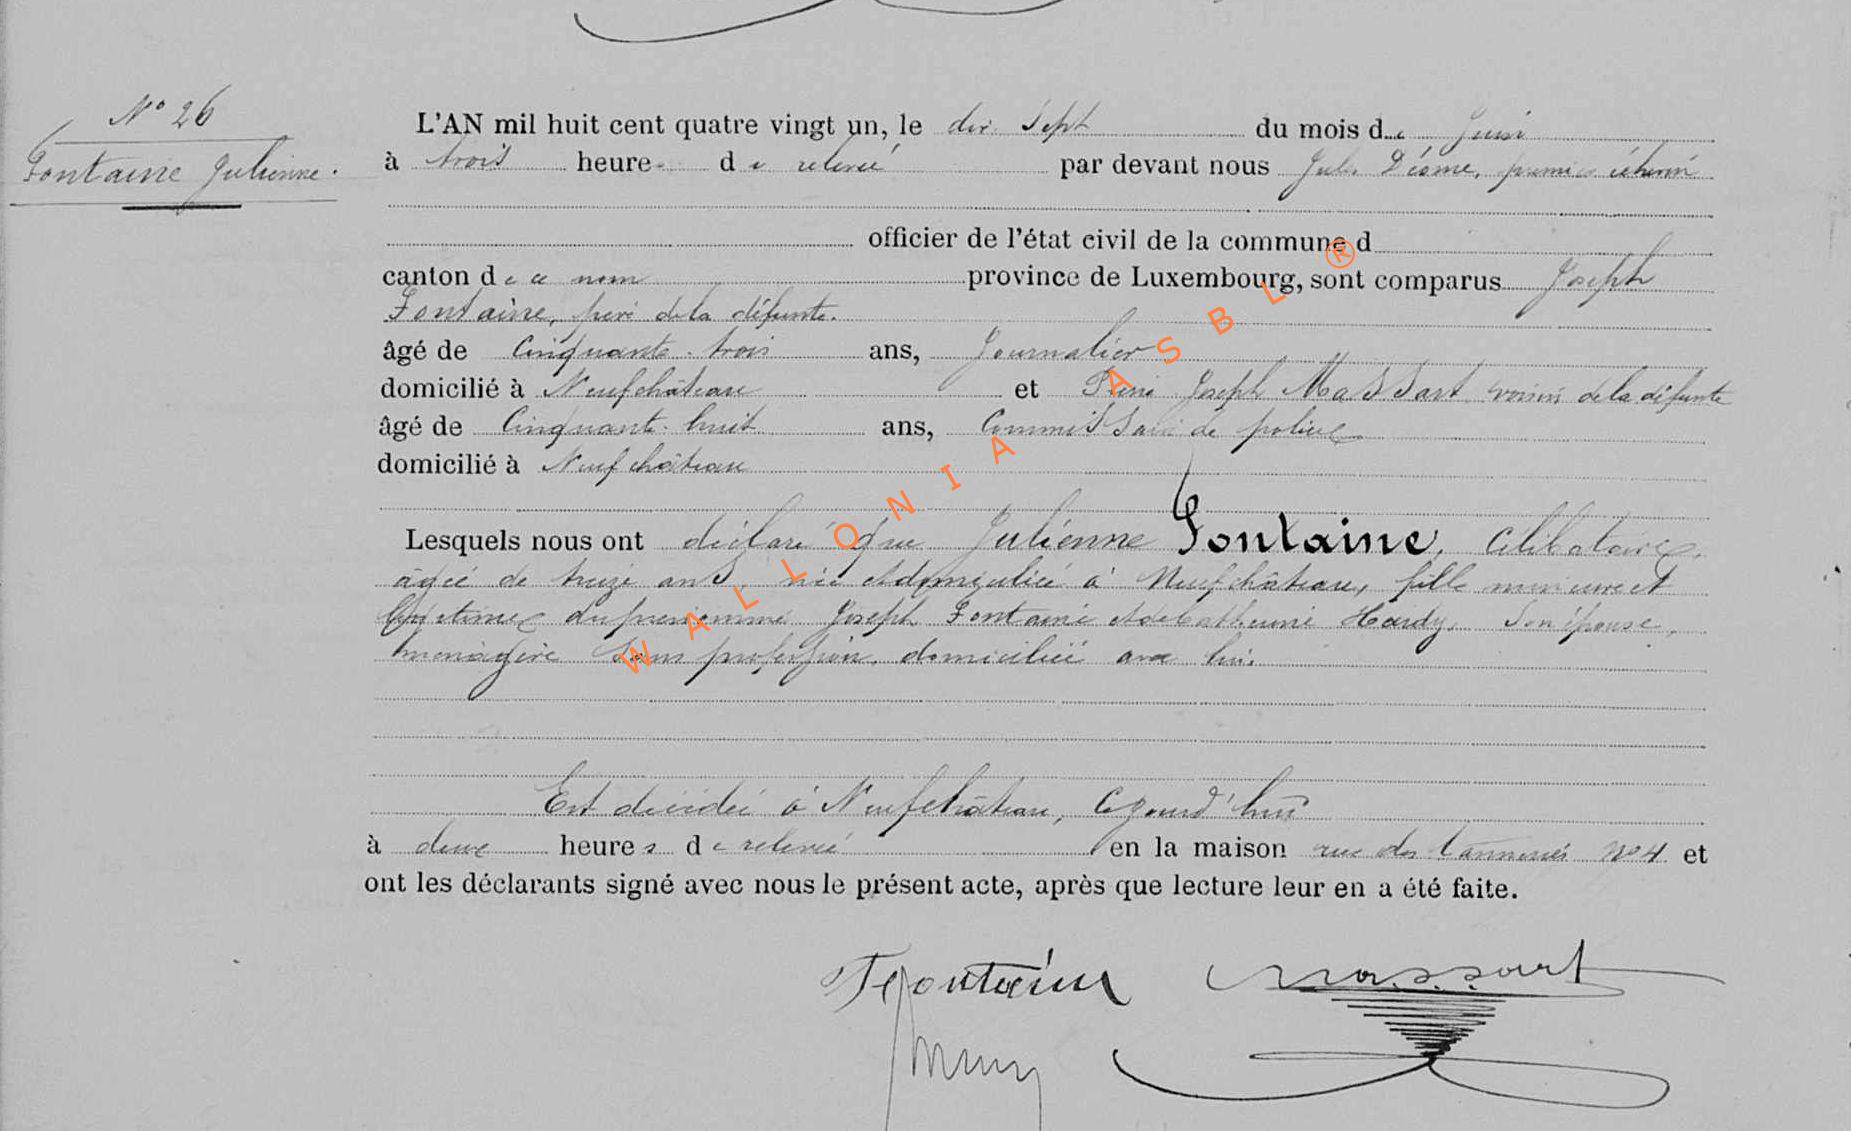 N° 26
Fontaine Julienne.
L'AN mil huit cent quatre vingt un, le dix sept du mois de Juin
à trois heure de relevée par devant nous Jules Déome, premier échevin
officier de l'état civil de la commune d
canton de ce nom province de Luxembourg, sont comparus Joseph
Fontaine, père de la défunte.
âgé de Cinquante-trois ans, Journalier
domicilié à Neufchâteau et Joseph Massart voisin de la défunte
âgé de Cinquante-huit ans, Commissaire de police
domicilié à Neufchâteau
Lesquels nous ont déclaré que Julienne Fontaine, Célibataire,
âgée de treize ans, née et domiciliée à Neufchâteau, fille mineure et
légitime du prénommé Joseph Fontaine et de Catherine Hardy, Son épouse,
ménagère Sans profession, domiciliée avec lui.
Est décédée à Neufchâteau, Cejourd'hui
à deux heures de relevée en la maison rue des Tanneries N° 4 et
ont les déclarants signé avec nous le présent acte, après que lecture leur en a été faite.
Fontaine Massart
WALLONIA ASBL ®